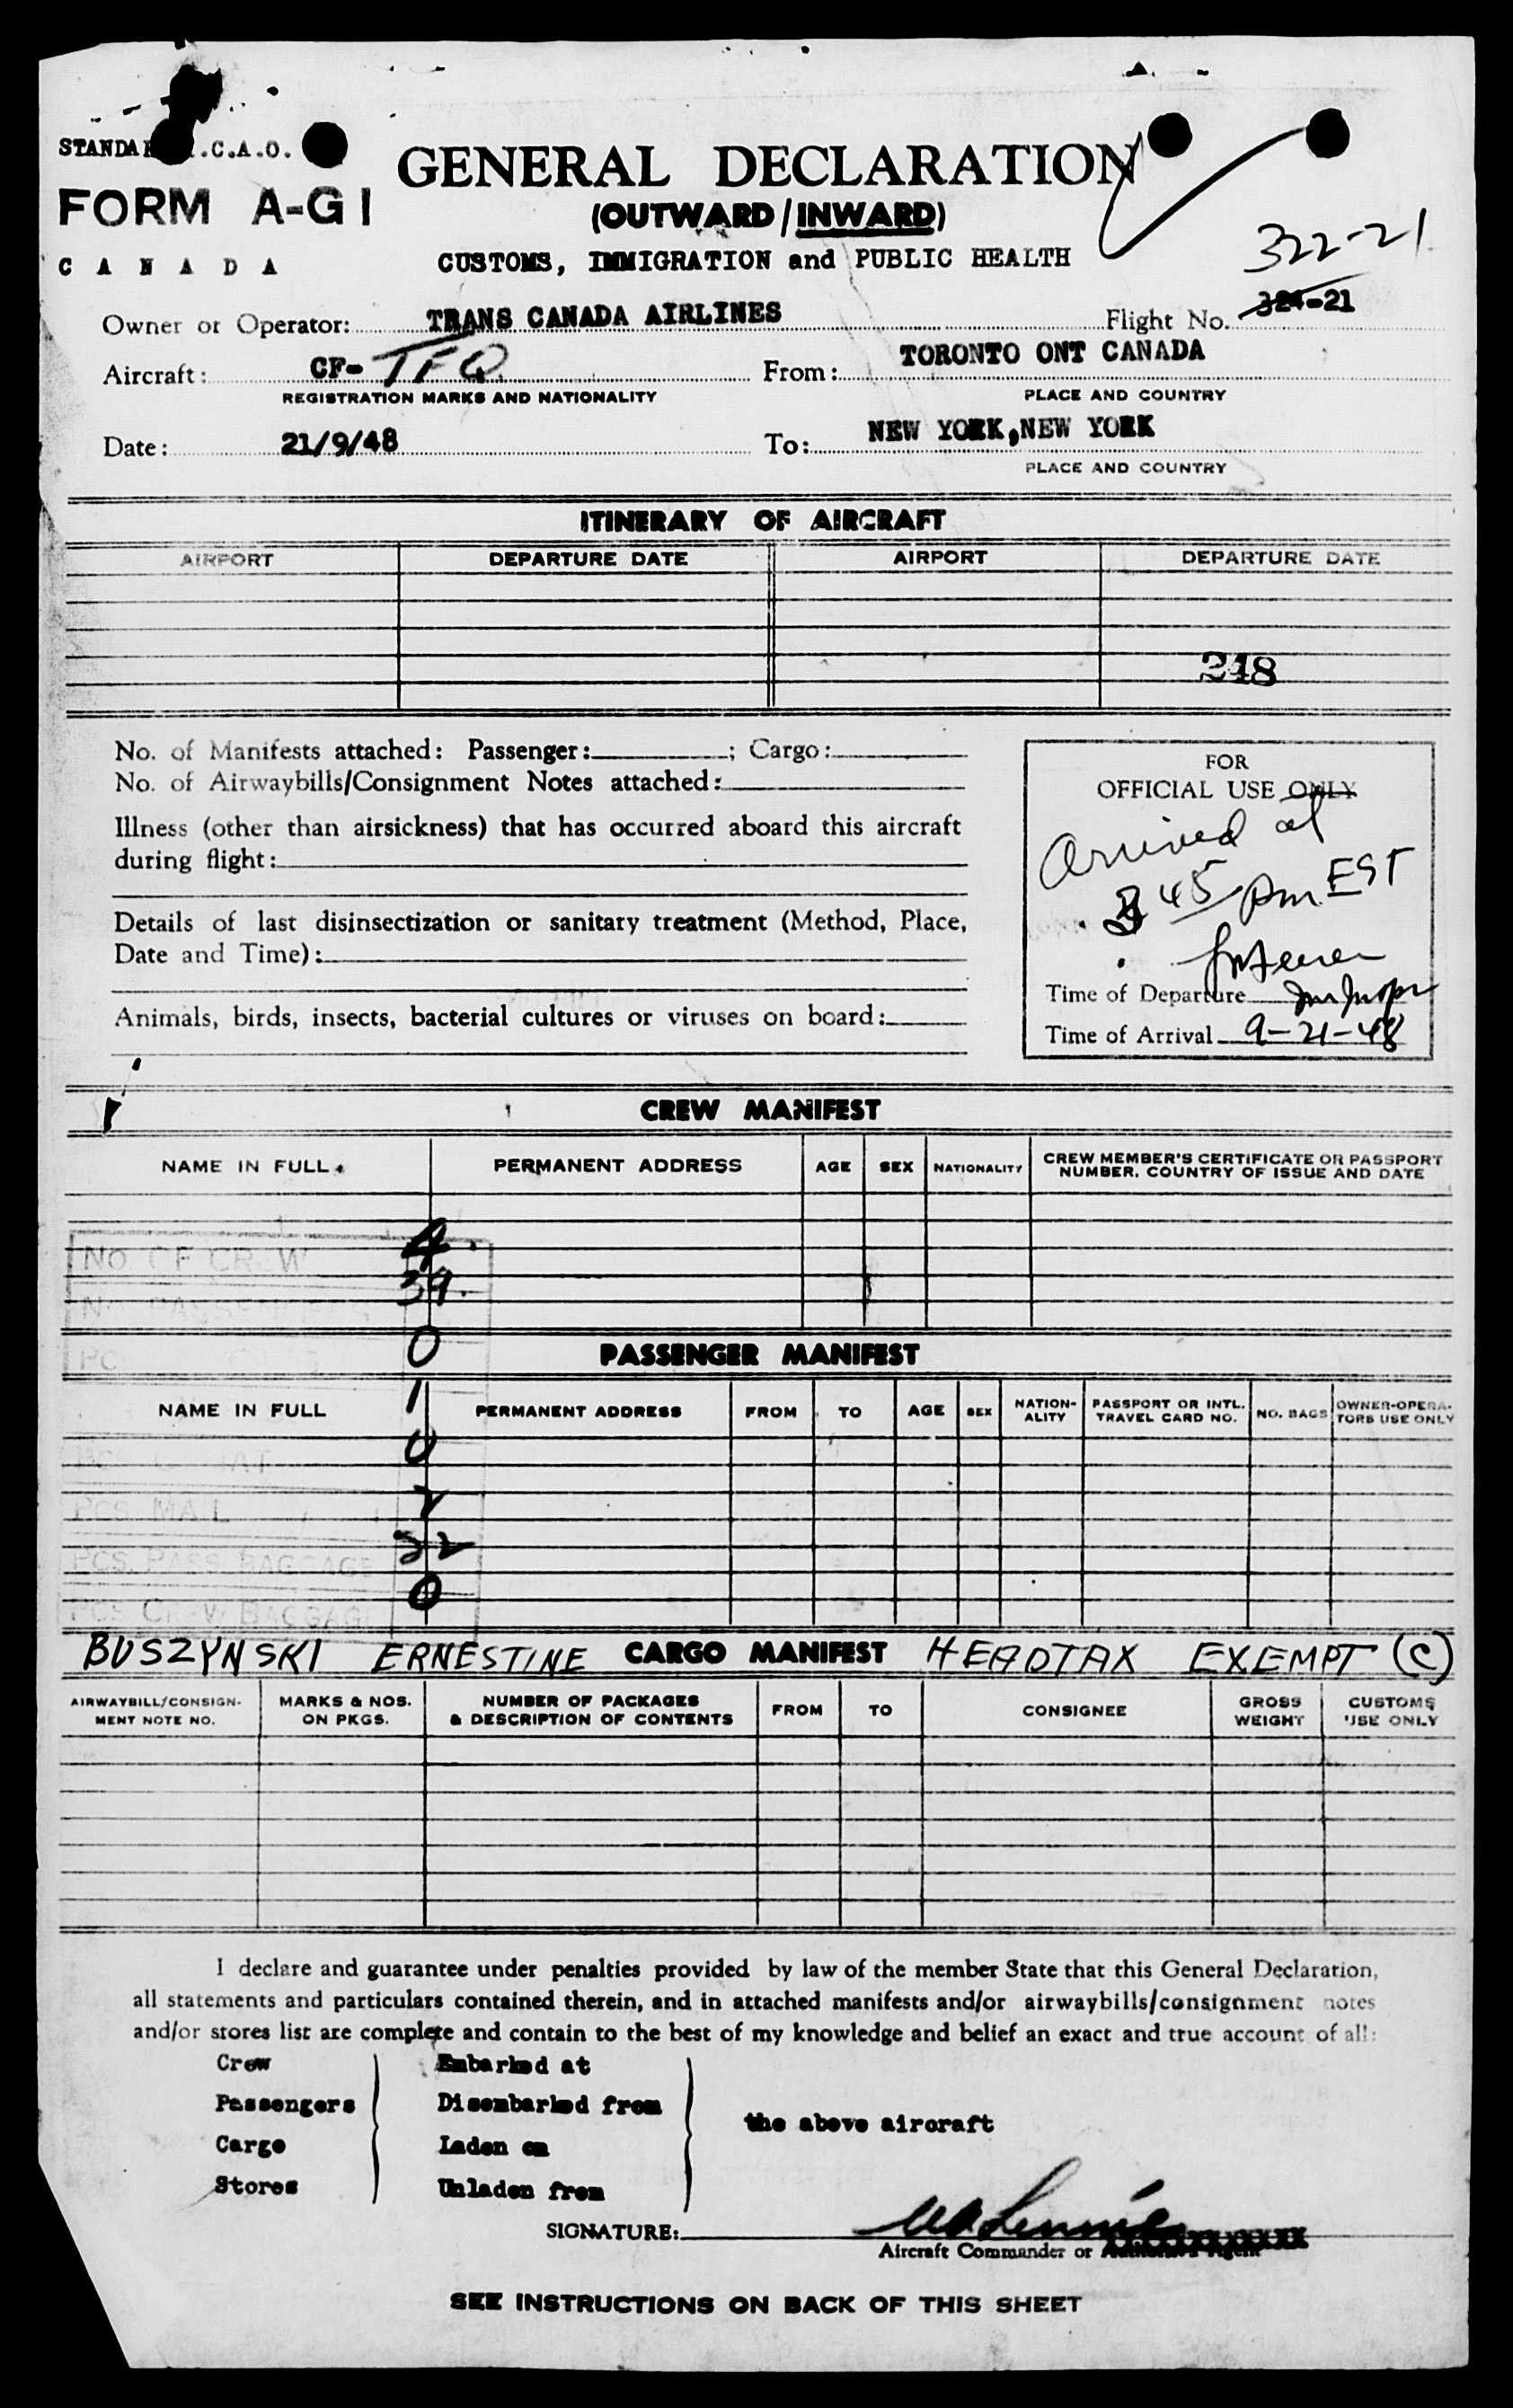 STANDA .C.A.O.
GENERAL DECLARATION
FORM A-G1
(OUTWARD/INWARD)
CANADA
CUSTOMS, IMMIGRATION and PUBLIC HEALTH
322-21
Owner or Operator: TRANS CANADA AIRLINES Flight No. 324-21
Aircraft: CF-TFQ From: TORONTO ONT CANADA
REGISTRATION MARKS AND NATIONALITY PLACE AND COUNTRY
Date: 21/9/48 To: NEW YORK,NEW YORK
PLACE AND COUNTRY
ITINERARY OF AIRCRAFT
AIRPORT DEPARTURE DATE AIRPORT DEPARTURE DATE
248
No. of Manifests attached: Passenger: ; Cargo:
No. of Airwaybills/Consignment Notes attached:
Illness (other than airsickness) that has occurred aboard this aircraft
during flight:
Details of last disinsectization or sanitary treatment (Method, Place,
Date and Time):
Animals, birds, insects, bacterial cultures or viruses on board:
FOR
OFFICIAL USE ONLY
Arrived at
45 pm EST
Time of Departure
Time of Arrival 9-21-48
CREW MANIFEST
NAME IN FULL PERMANENT ADDRESS AGE SEX NATIONALITY CREW MEMBER'S CERTIFICATE OR PASSPORT
NUMBER, COUNTRY OF ISSUE AND DATE
NO OF CREW 4
NO. PASSENGERS 39
0
PASSENGER MANIFEST
1
NAME IN FULL PERMANENT ADDRESS FROM TO AGE SEX NATION-
ALITY PASSPORT OR INTL.
TRAVEL CARD NO. NO. BAGS OWNER-OPERA-
TORS USE ONLY
0
PCS MAIL
PCS. PASS BAGGAGE 32
PCS CREW BAGGAGE 0
BUSZYNSKI ERNESTINE CARGO MANIFEST HEADTAX EXEMPT (C)
AIRWAYBILL/CONSIGN-
MENT NOTE NO. MARKS & NOS.
ON PKGS. NUMBER OF PACKAGES
& DESCRIPTION OF CONTENTS FROM TO CONSIGNEE GROSS
WEIGHT CUSTOMS
USE ONLY
I declare and guarantee under penalties provided by law of the member State that this General Declaration,
all statements and particulars contained therein, and in attached manifests and/or airwaybills/consignment notes
and/or stores list are complete and contain to the best of my knowledge and belief an exact and true account of all:
Crew Embarked at
Passengers Disembarked from
the above aircraft
Cargo Laden on
Stores Unladen from
SIGNATURE:
Aircraft Commander or
SEE INSTRUCTIONS ON BACK OF THIS SHEET